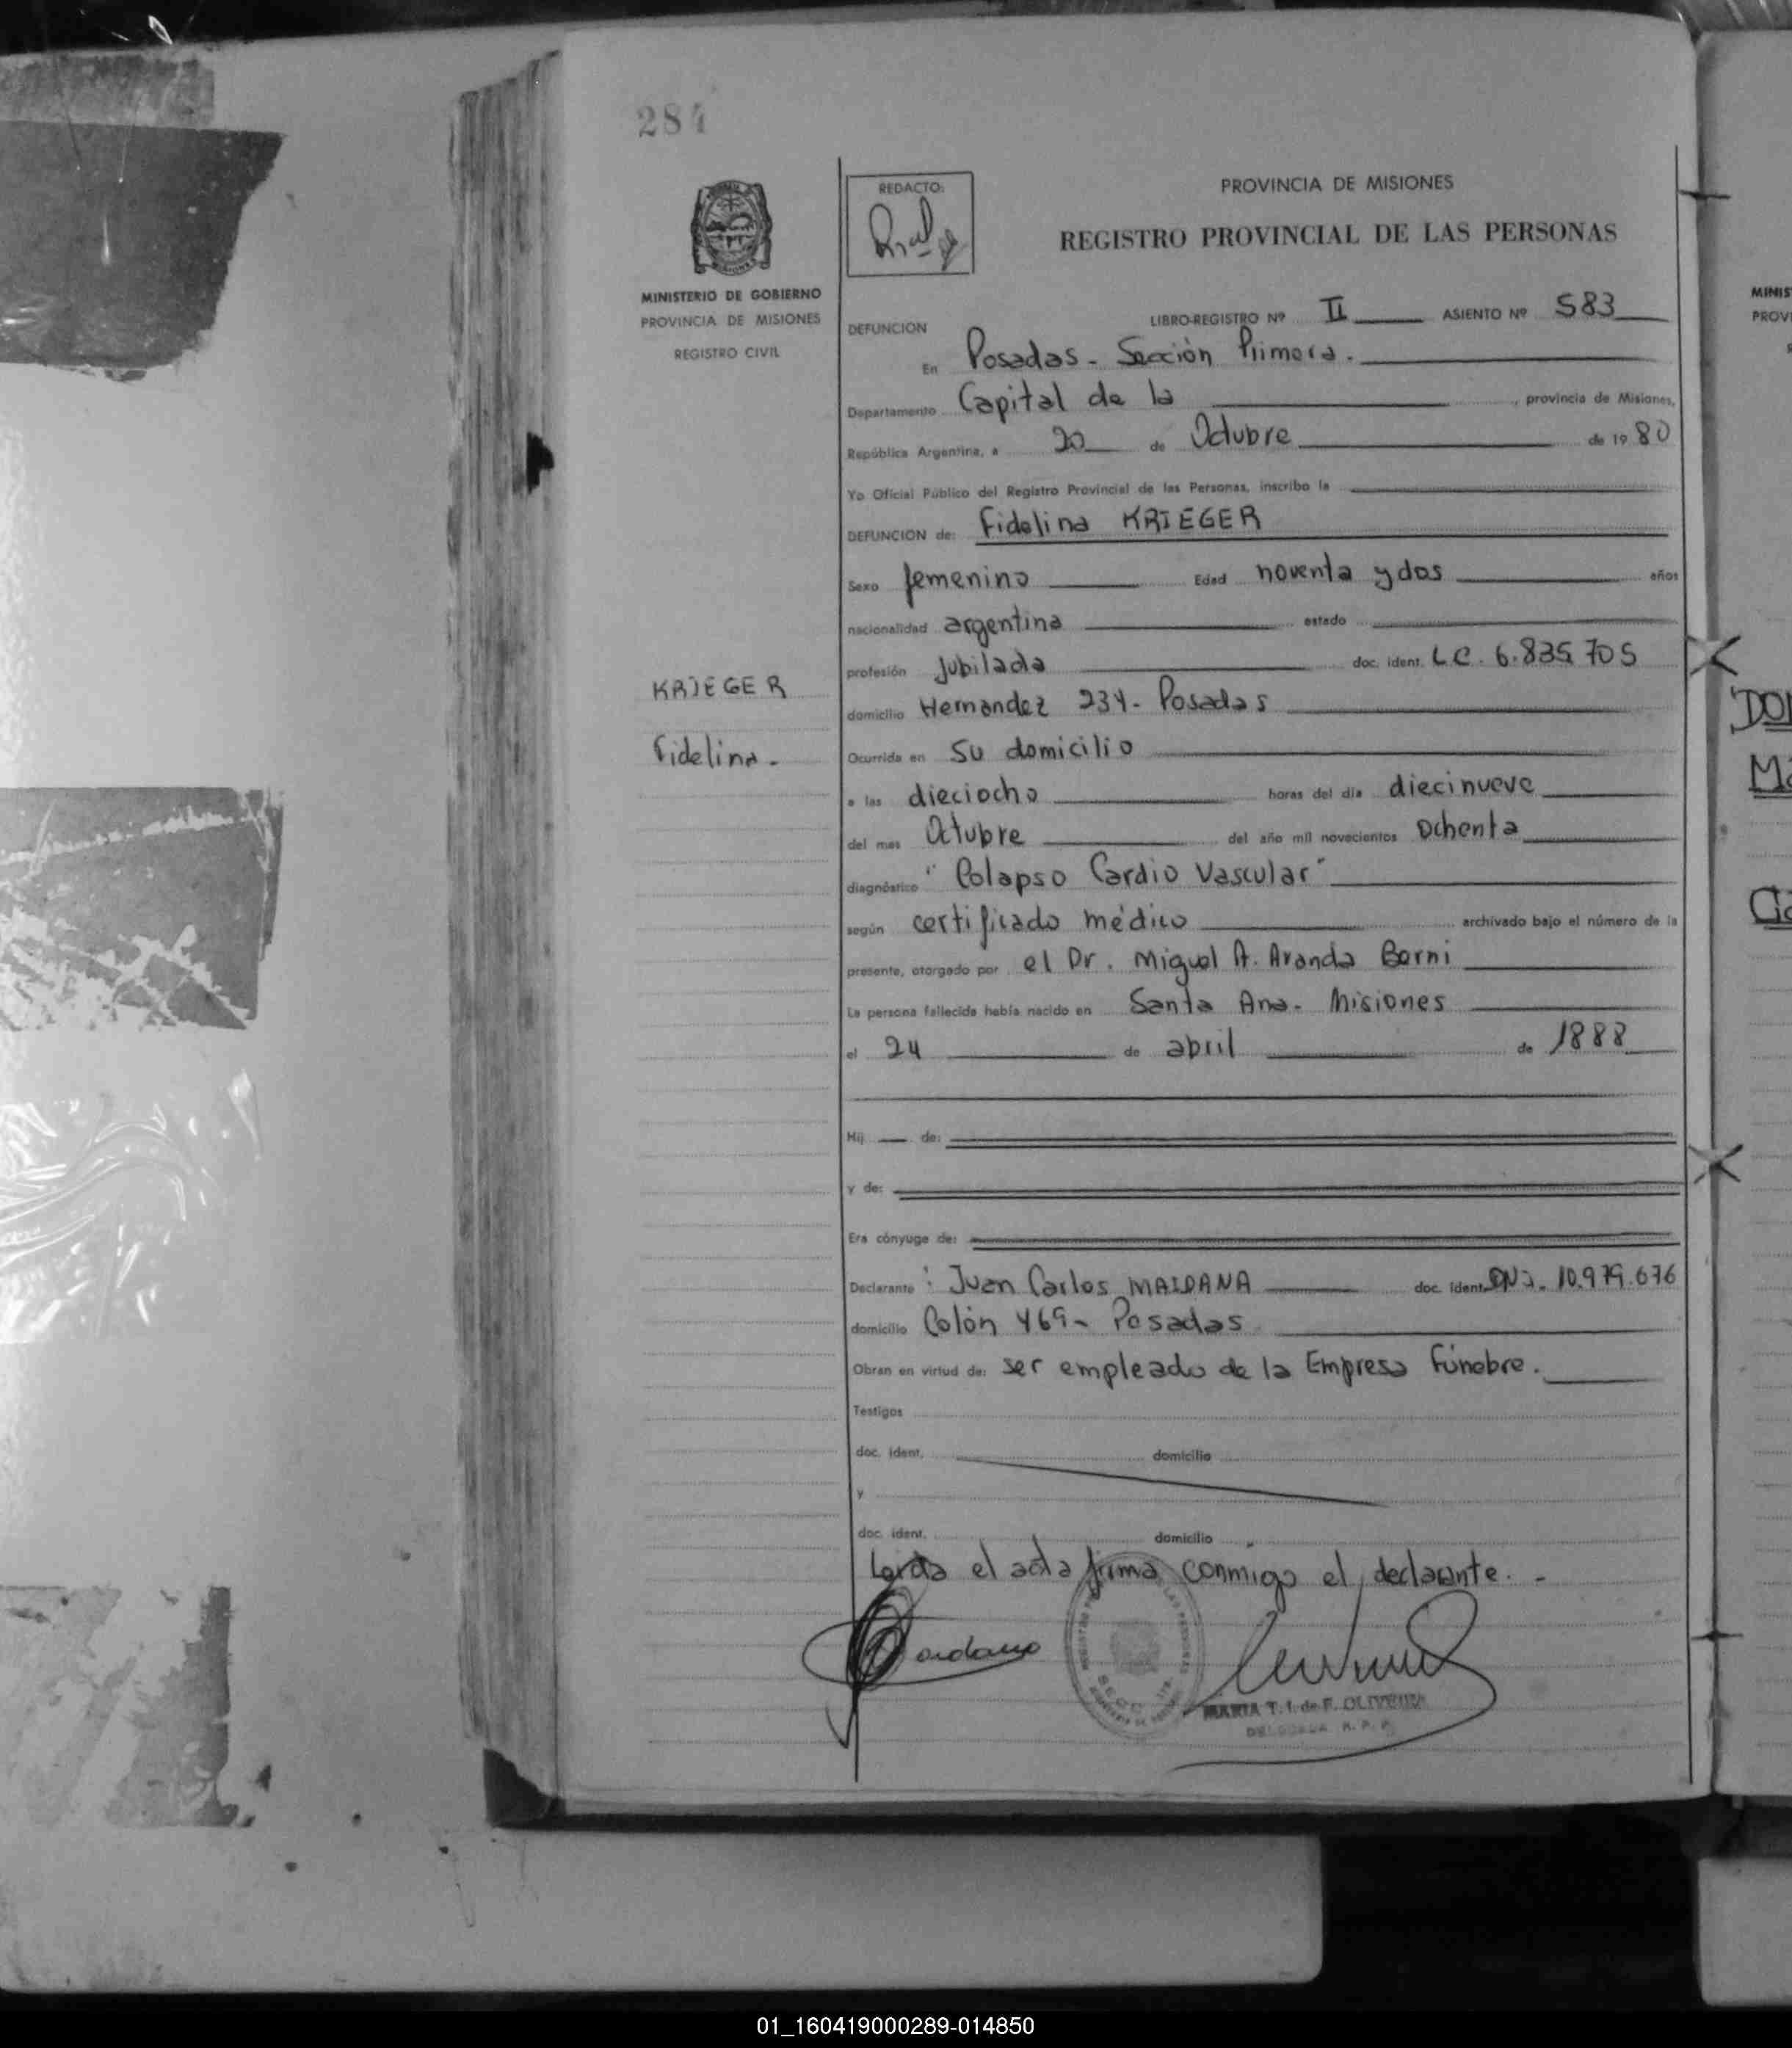 284
REDACTO:
PROVINCIA DE MISIONES
REGISTRO PROVINCIAL DE LAS PERSONAS
MINISTERIO DE GOBIERNO
PROVINCIA DE MISIONES
REGISTRO CIVIL
DEFUNCION LIBRO-REGISTRO Nº II ASIENTO Nº 583
En Posadas - Sección Primera.
Departamento Capital de la , provincia de Misiones,
República Argentina, a 20 de Octubre de 19 80
Yo Oficial Público del Registro Provincial de las Personas, inscribo la
DEFUNCION de: Fidelina KRIEGER
Sexo femenino Edad noventa y dos años
nacionalidad argentina estado
profesión Jubilada doc. ident. LC. 6.835.705
KRIEGER
domicilio Hernandez 234 - Posadas
Fidelina.-
Ocurrida en su domicilio
a las dieciocho horas del día diecinueve
del mes Octubre del año mil novecientos Ochenta
diagnóstico "Colapso Cardio Vascular"
según certificado médico archivado bajo el número de la
presente, otorgado por el Dr. Miguel A. Aranda Berni
La persona fallecida había nacido en Santa Ana - Misiones
el 24 de abril de 1888
Hij de:
y de:
Era cónyuge de:
Declarante : Juan Carlos MAIDANA doc. ident. DNI. 10.979.676
domicilio Colón 469 - Posadas
Obran en virtud de: ser empleado de la Empresa Fúnebre.
Testigos
doc. ident. domicilio
y
doc. ident. domicilio
Leída el acta firma conmigo el declarante. -
MARIA T. I. de F. OLIVEIRA
DELEGADA R. P. P.
MINIS
PROVI
DOI
Ma
Cia
01_160419000289-014850